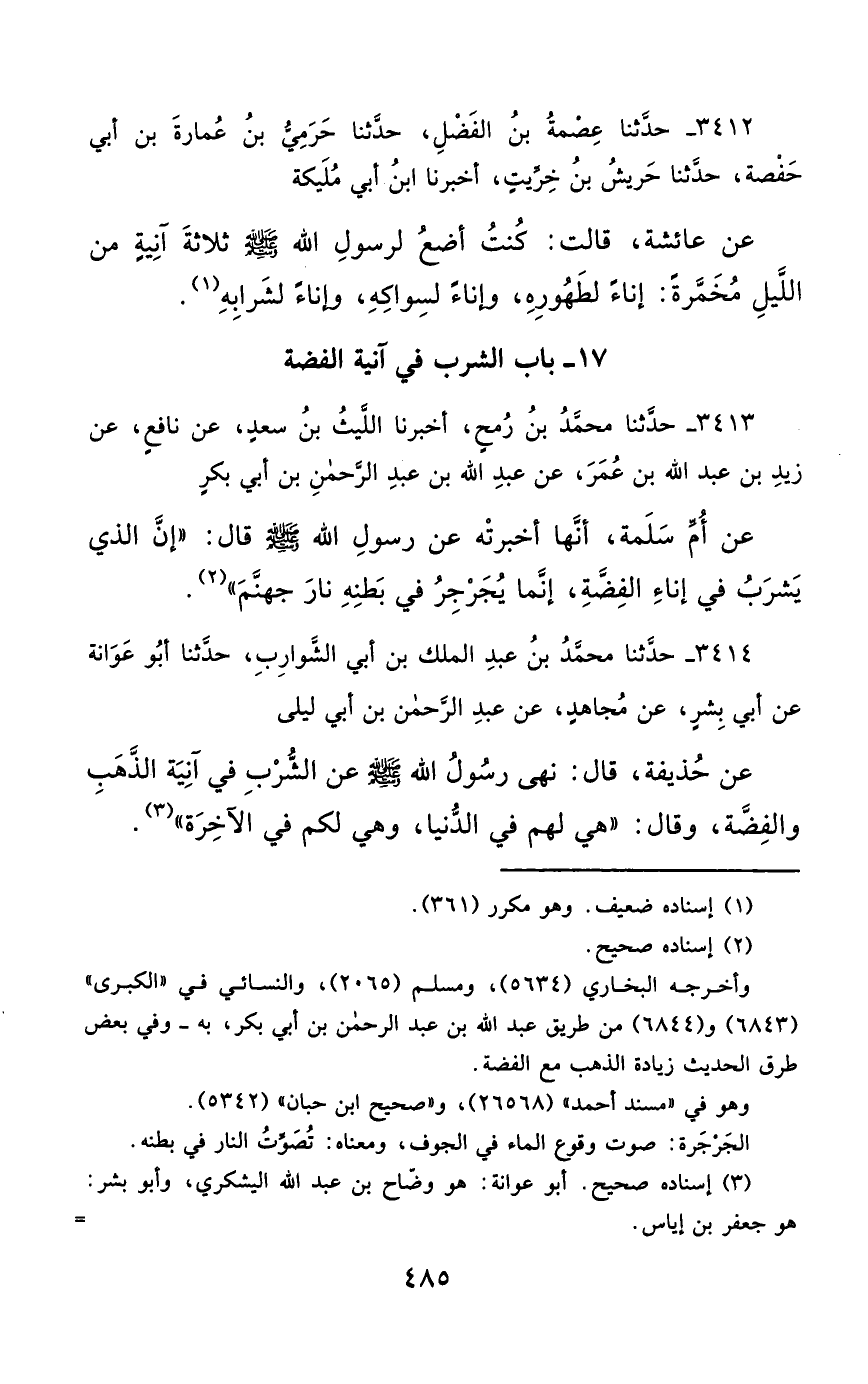 ٣٤١٢ـ حدَّثنا عِصْمةُ بنُ الفَضْلِ، حدَّثنا حَرَمِيُّ بنُ عُمارةَ بن أبي
حَفْصة، حدَّثنا حَريشُ بنُ خِرِّيتٍ، أخبرنا ابنُ أبي مُلَيكة
عن عائشة، قالت: كُنتُ أضعُ لرسولِ الله ﷺ ثلاثةَ آنِيةٍ من
اللَّيلِ مُخَمَّرةً: إناءً لطَهُورِهِ، وإناءً لسِواكِهِ، وإناءً لشَرابِهِ(١).
١٧ـ باب الشرب في آنية الفضة
٣٤١٣ـ حدَّثنا محمَّدُ بنُ رُمحٍ، أخبرنا اللَّيثُ بنُ سعدٍ، عن نافعٍ، عن
زيدِ بن عبد الله بن عُمَرَ، عن عبدِ الله بن عبدِ الرَّحمٰنِ بن أبي بكرٍ
عن أُمِّ سَلَمة، أنَّها أخبرتْه عن رسولِ الله ﷺ قال: «إنَّ الذي
يَشرَبُ في إناءِ الفِضَّةِ، إنَّما يُجَرْجِرُ في بَطنِهِ نارَ جهنَّمَ»(٢).
٣٤١٤ـ حدَّثنا محمَّدُ بنُ عبدِ الملك بن أبي الشَّوارِبِ، حدَّثنا أبُو عَوَانة
عن أبي بِشرٍ، عن مُجاهدٍ، عن عبدِ الرَّحمٰن بن أبي ليلى
عن حُذيفة، قال: نهى رسُولُ الله ﷺ عن الشُّرْبِ في آنِيَة الذَّهَبِ
والفِضَّة، وقال: «هي لهم في الدُّنيا، وهي لكم في الآخِرَة»(٣).
(١) إسناده ضعيف. وهو مكرر (٣٦١).
(٢) إسناده صحيح.
وأخرجه البخاري (٥٦٣٤)، ومسلم (٢٠٦٥)، والنسائي في «الكبرى»
(٦٨٤٣) و(٦٨٤٤) من طريق عبد الله بن عبد الرحمٰن بن أبي بكر، به ـ وفي بعض
طرق الحديث زيادة الذهب مع الفضة.
وهو في «مسند أحمد» (٢٦٥٦٨)، و«صحيح ابن حبان» (٥٣٤٢).
الجَرْجَرة: صوت وقوع الماء في الجوف، ومعناه: تُصَوِّتُ النار في بطنه.
(٣) إسناده صحيح. أبو عوانة: هو وضّاح بن عبد الله اليشكري، وأبو بشر:
هو جعفر بن إياس. =
٤٨٥